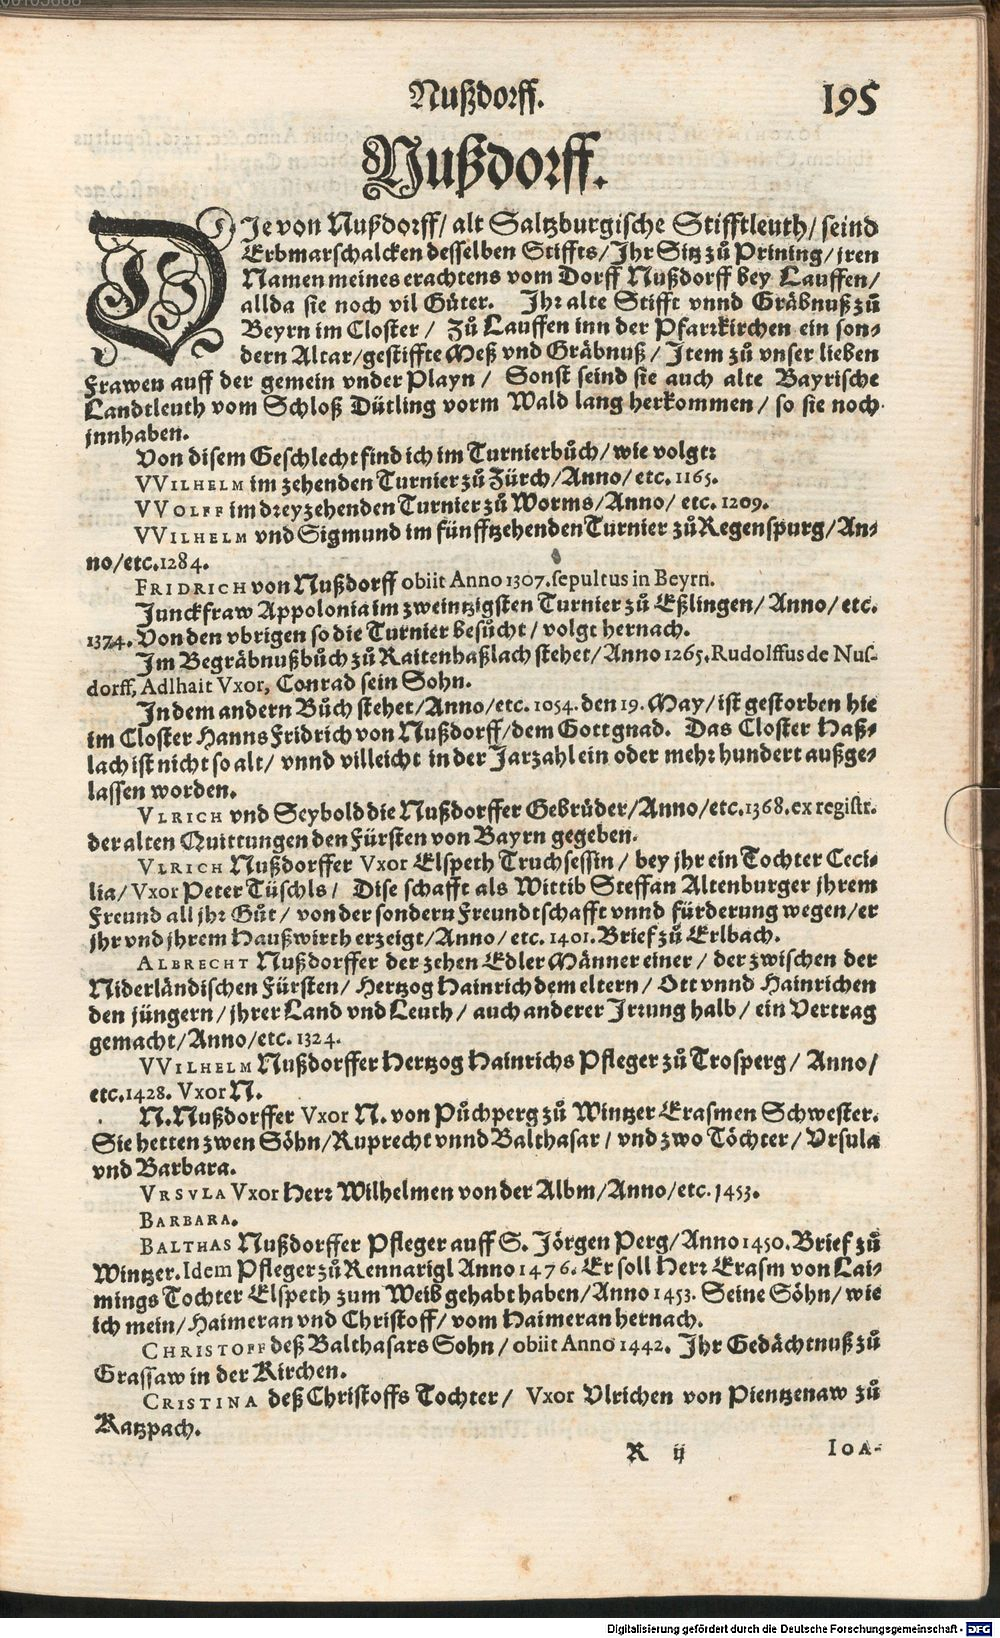 Nußdorff. 195
Nußdorff.
DIe von Nußdorff/ alt Saltzburgische Stifftleuth/ seind
Erbmarschalcken desselben Stiffts/ Ihr Sitz zů Prining/ jren
Namen meines erachtens vom Dorff Nußdorff bey Lauffen/
allda sie noch vil Güter. Ihr alte Stifft vnnd Gräbnuß zů
Beyrn im Closter/ Zů Lauffen inn der Pfarrkirchen ein son-
dern Altar/ gestiffte Meß vnd Gräbnuß/ Item zů vnser lieben
Frawen auff der gemein vnder Playn/ Sonst seind sie auch alte Bayrische
Landtleuth vom Schloß Dütling vorm Wald lang herkommen/ so sie noch
jnnhaben.
Von disem Geschlecht find ich im Turnierbůch/ wie volgt:
VVILHELM im zehenden Turnier zů Zürch/ Anno/ etc. 1165.
VVOLFF im dreyzehenden Turnier zů Worms/ Anno/ etc. 1209.
VVILHELM vnd Sigmund im fünfftzehenden Turnier zů Regenspurg/ An-
no/ etc. 1284.
FRIDRICH von Nußdorff obiit Anno 1307. sepultus in Beyrn.
Junckfraw Appolonia im zweintzigsten Turnier zů Eßlingen/ Anno/ etc.
1374. Von den vbrigen so die Turnier besůcht/ volgt hernach.
Im Begräbnußbůch zů Raitenhaßlach stehet/ Anno 1265. Rudolffus de Nus-
dorff, Adlhait Vxor, Conrad sein Sohn.
In dem andern Bůch stehet/ Anno/ etc. 1054. den 19. May/ ist gestorben hie
im Closter Hanns Fridrich von Nußdorff/ dem Gott gnad. Das Closter Haß-
lach ist nicht so alt/ vnnd villeicht in der Jarzahl ein oder mehr hundert außge-
lassen worden.
VLRICH vnd Seybold die Nußdorffer Gebrüder/ Anno/ etc. 1368. ex registr.
der alten Quittungen den Fürsten von Bayrn gegeben.
VLRICH Nußdorffer Vxor Elspeth Truchsessin/ bey jhr ein Tochter Ceci-
lia/ Vxor Peter Tüschls/ Dise schafft als Wittib Steffan Altenburger jhrem
Freund all jhr Gůt/ von der sondern Freundtschafft vnnd fürderung wegen/ er
jhr vnd jhrem Haußwirth erzeigt/ Anno/ etc. 1401. Brief zů Erlbach.
ALBRECHT Nußdorffer der zehen Edler Männer einer/ der zwischen der
Niderländischen Fürsten/ Hertzog Hainrich dem eltern/ Ott vnnd Hainrichen
den jüngern/ jhrer Land vnd Leuth/ auch anderer Irrung halb/ ein Vertrag
gemacht/ Anno/ etc. 1324.
VVILHELM Nußdorffer Hertzog Hainrichs Pfleger zů Trosperg/ Anno/
etc. 1428. Vxor N.
N. Nußdorffer Vxor N. von Půchperg zů Wintzer Erasmen Schwester.
Sie hetten zwen Söhn/ Ruprecht vnnd Balthasar/ vnd zwo Töchter/ Vrsula
vnd Barbara.
VRSVLA Vxor Herr Wilhelmen von der Albm/ Anno/ etc. 1453.
BARBARA.
BALTHAS Nußdorffer Pfleger auff S. Jörgen Perg/ Anno 1450. Brief zů
Wintzer. Idem Pfleger zů Rennarigl Anno 1476. Er soll Herr Erasm von Lai-
mings Tochter Elspeth zum Weib gehabt haben/ Anno 1453. Seine Söhn/ wie
ich mein/ Haimeran vnd Christoff/ vom Haimeran hernach.
CHRISTOFF deß Balthasars Sohn/ obiit Anno 1442. Ihr Gedächtnuß zů
Grassaw in der Kirchen.
CRISTINA deß Christoffs Tochter/ Vxor Vlrichen von Pientzenaw zů
Katzpach.
R ij IOA-
Digitalisierung gefördert durch die Deutsche Forschungsgemeinschaft - DFG